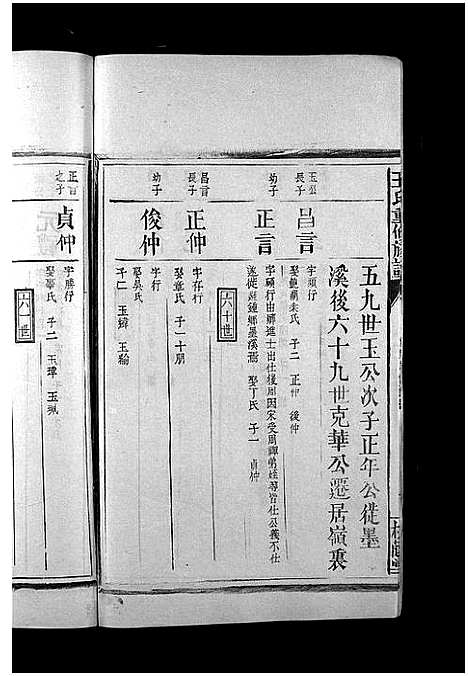 五九世玉公次子正年公徙墨
溪後六十九世克華公遷居嶺裏
玉公
長子
昌言
字頭行
子二 正仲 俊仲
幼子
正言
字頎行由鄉進士出仕後周因宋受周禪弟姪等皆仕公義不仕
遂徙 鍾鄉墨溪焉 娶丁氏 子一 貞仲
六十世
昌言
長子
正仲
字存行
娶童氏 子一 十朋
幼子
俊仲
字行
娶吳氏
子二 玉 玉輪
正言
之子
貞仲
字勝行
娶 氏 子二 玉璋 玉珮
六一世